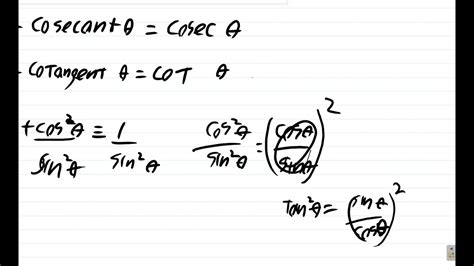 - Cosecant θ = Cosec θ
- CoTangent θ = COT θ
+ cos²θ / sin²θ ≡ 1 / sin²θ    cos²θ / sin²θ = (cosθ / sinθ)²
Tan²θ = (sinθ / cosθ)²